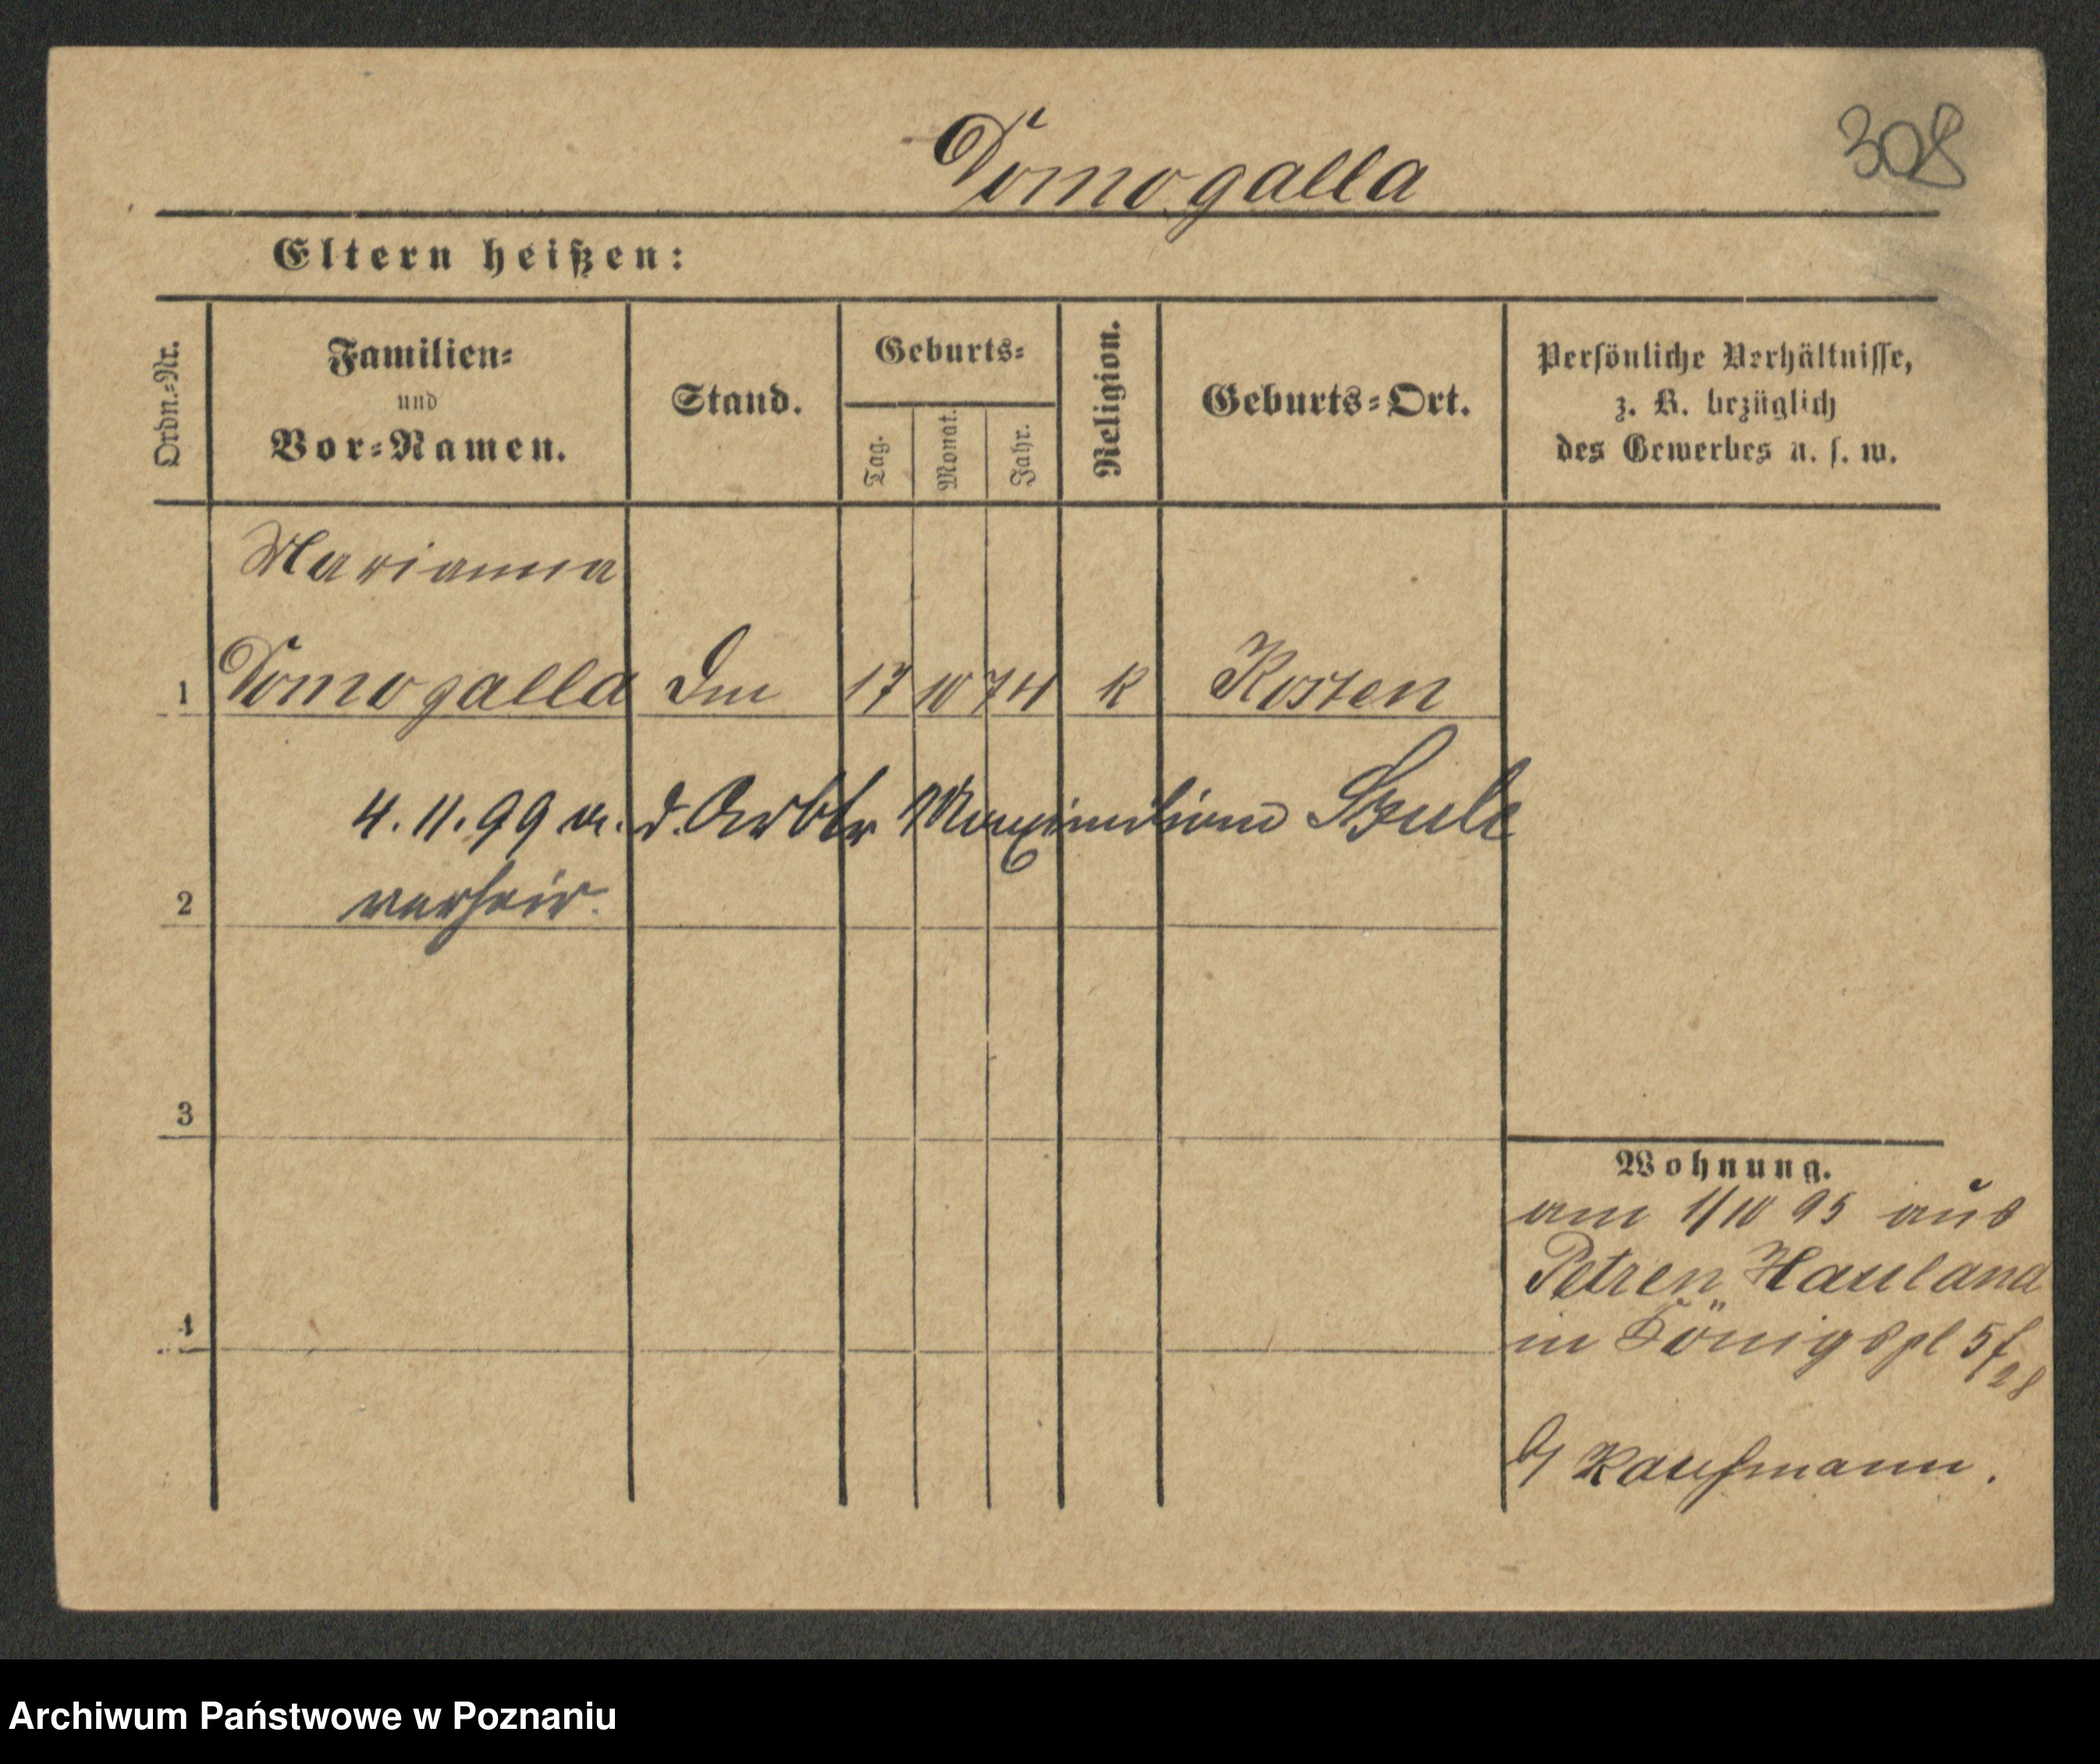 308
Domogalla
Eltern heißen:
Ordn.-Nr.
Familien-
und
Vor-Namen.
Stand.
Geburts-
Tag.
Monat.
Jahr.
Religion.
Geburts-Ort.
Persönliche Verhältnisse,
z. B. bezüglich
des Gewerbes u. s. w.
Marianna
1 Domogalla 17 10 74 k Kosten
4.11.99 m. d. Arbtr Maximilian Szulc
2 verheir.
3
Wohnung.
am 1/10 95 aus
Petzen Hauland
4
in Königspl 5
b/ Kaufmann.
Archiwum Państwowe w Poznaniu